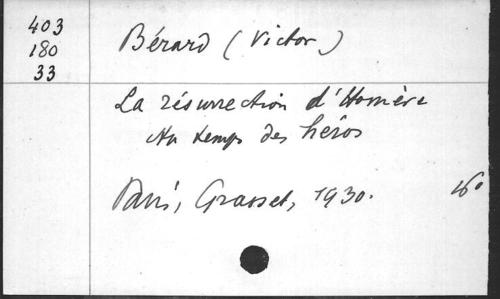 403
180
33
Bérard (Victor)
La résurrection d'Homère
Au temps des héros
Paris, Grasset, 1930.
16°